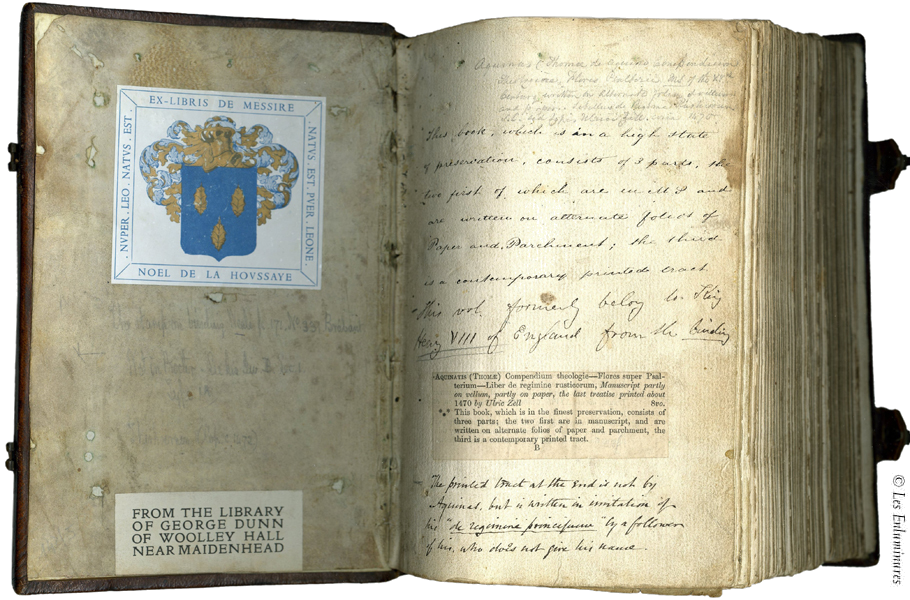 EX-LIBRIS DE MESSIRE
. NVPER . LEO . NATVS . EST .
. NATVS . EST . PVER . LEONE .
NOEL DE LA HOVSSAYE
FROM THE LIBRARY
OF GEORGE DUNN
OF WOOLLEY HALL
NEAR MAIDENHEAD
Aquinas (Thomas de Aquino)
of the XVth
written on alternate folios of vellum
"This book, which is in a high state
of preservation, consists of 3 parts, the
two first of which are in MS and
are written on alternate folios of
Paper and Parchment; the third
is a contemporary printed tract.
"This vol. formerly belog to King
Henry VIII of England from the binding
AQUINATIS (THOMÆ) Compendium theologie—Flores super Psal-
terium—Liber de regimine rusticorum, Manuscript partly
on vellum, partly on paper, the last treatise printed about
1470 by Ulric Zell 8vo.
*** This book, which is in the finest preservation, consists of
three parts; the two first are in manuscript, and are
written on alternate folios of paper and parchment, the
third is a contemporary printed tract.
B
The printed tract at the end is not by
Aquinas, but is written in imitation of
his "de regimine principum" by a follower
of his, who does not give his name.
© Les Enluminures